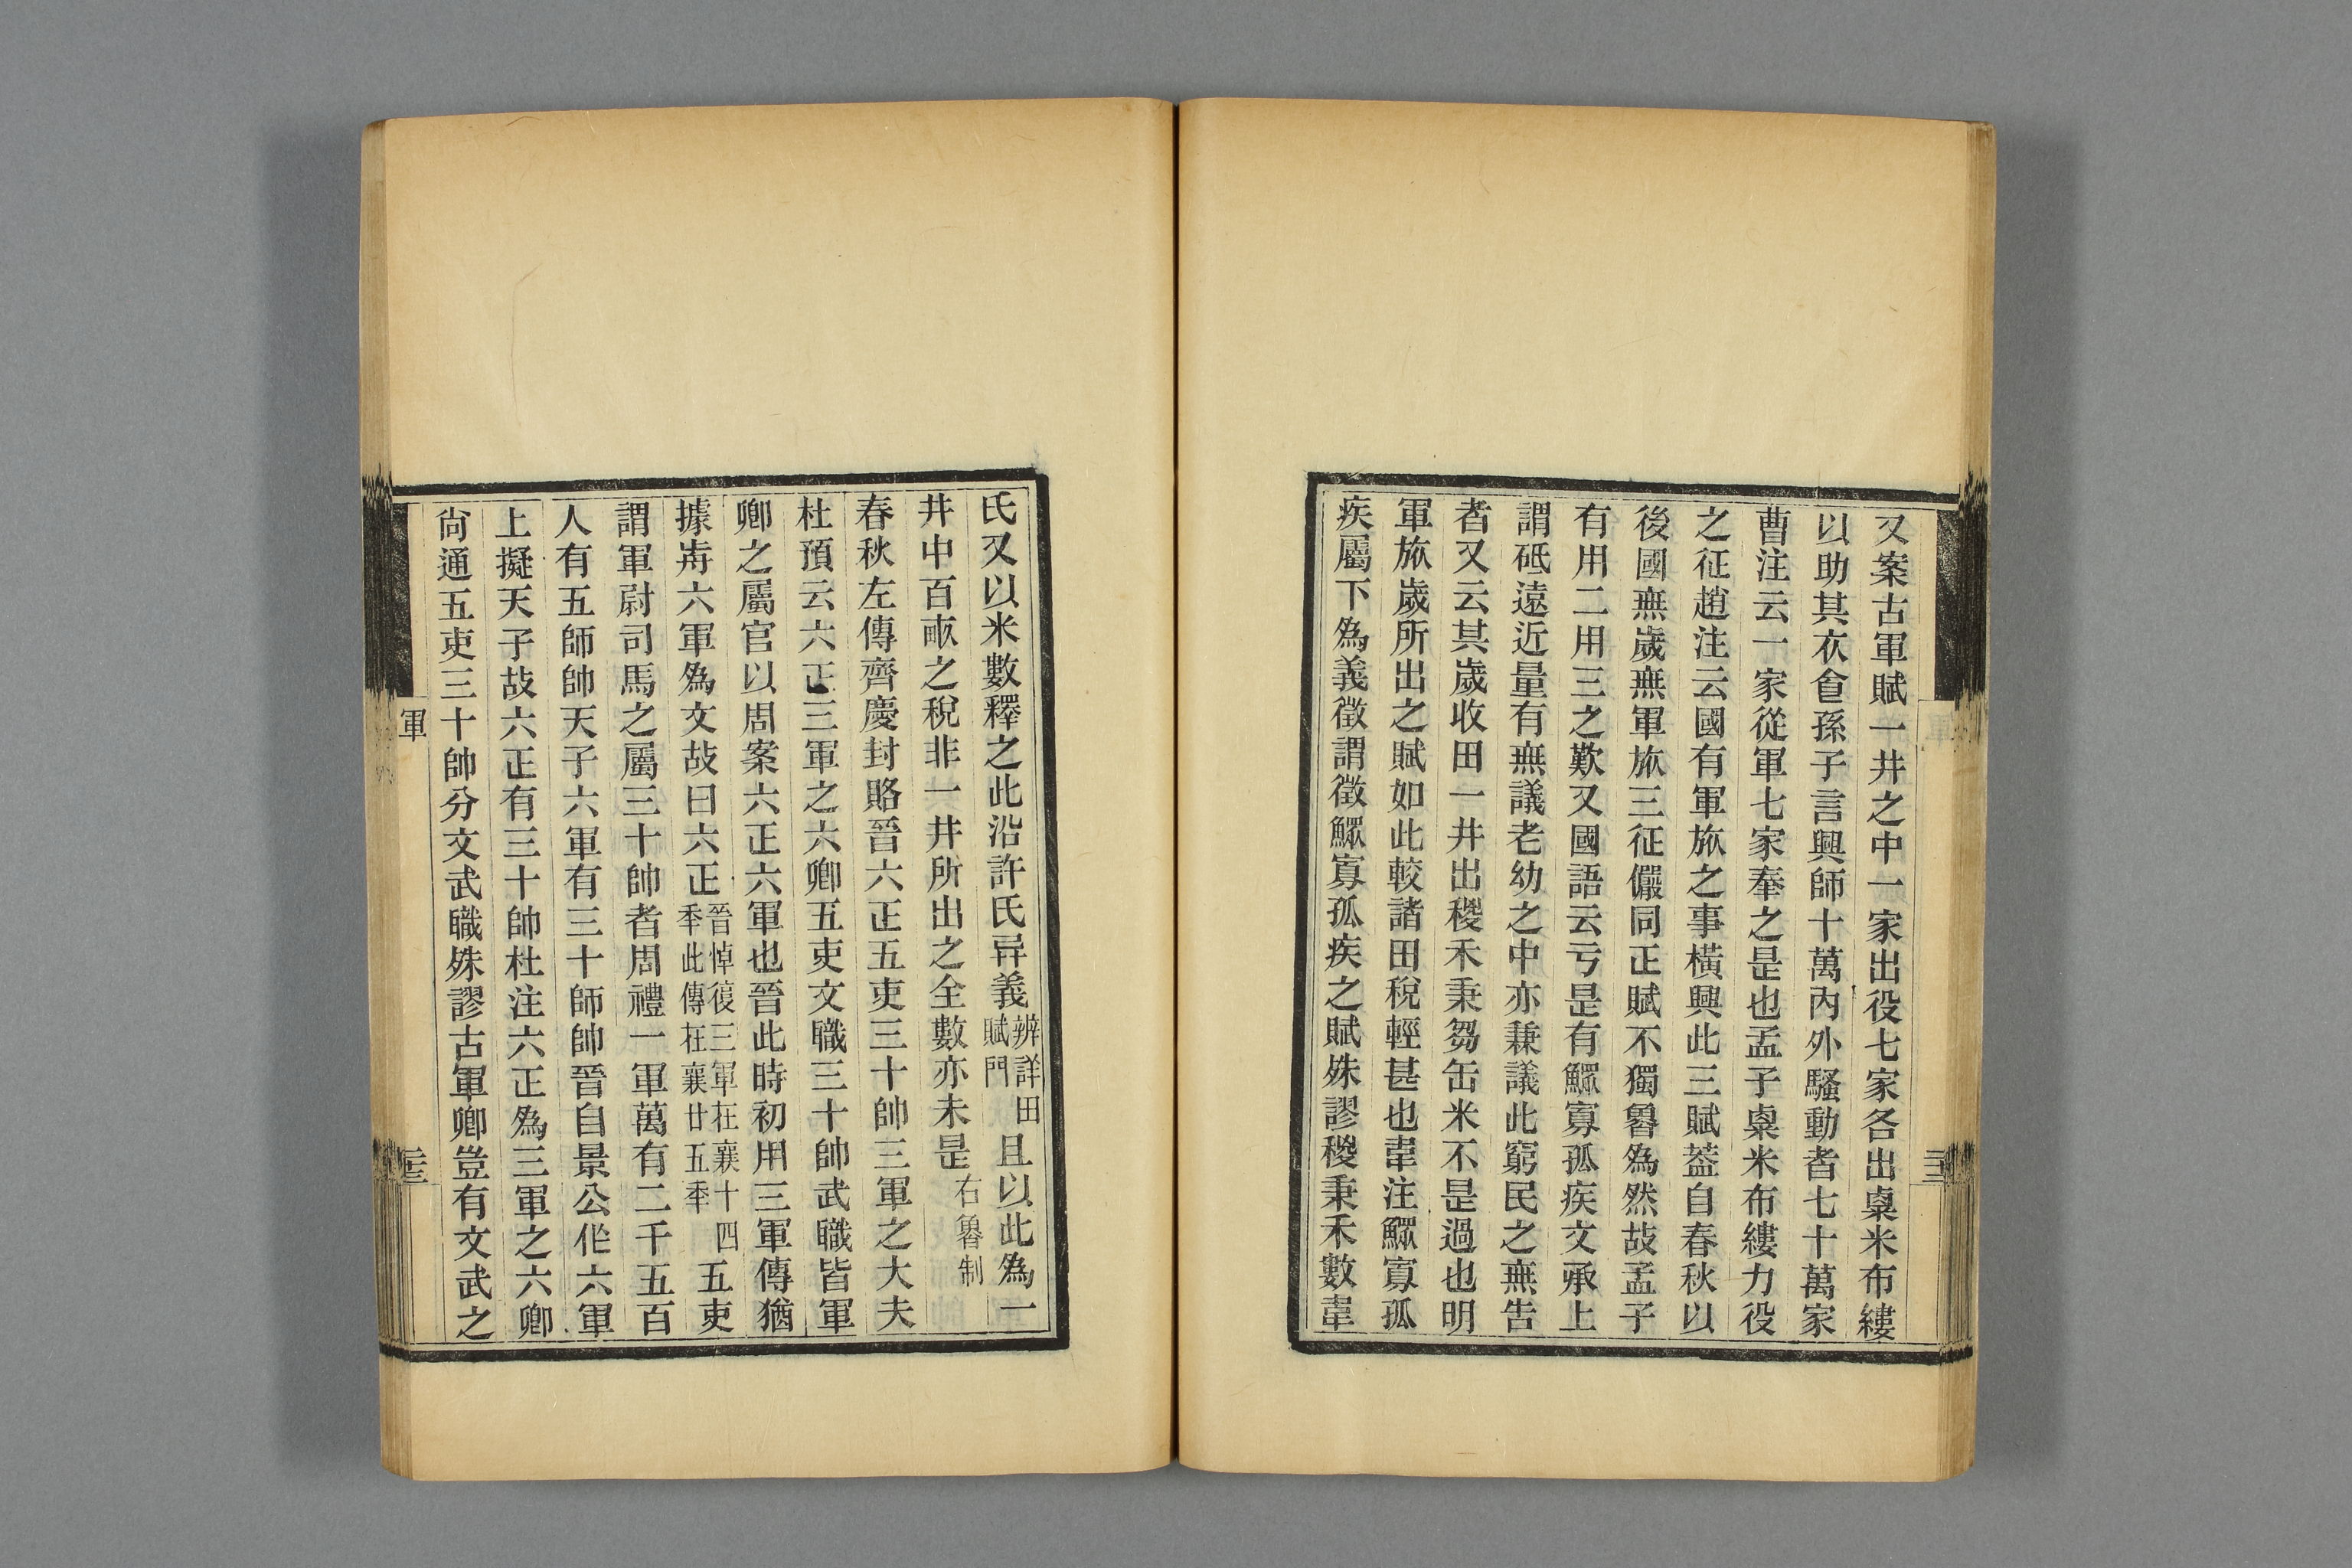 又案古軍賦一井之中一家出役七家各出㮚米布縷
以助其衣㑹孫子言興師十萬內外騷動者七十萬家
曹注云一家從軍七家奉之是也孟子㮚米布縷力役
之征趙注云國有軍旅之事橫興此三賦葢自春秋以
後國無歲無軍旅三征儼同正賦不獨魯為然故孟子
有用二用三之歎又國語云亏是有鰥寡孤疾文承上
謂砥遠近量有無議老幼之中亦兼議此窮民之無告
者又云其歲收田一井出稯禾秉芻缶米不是過也明
軍旅歲所出之賦如此較諸田稅輕甚也韋注鰥寡孤
疾屬下為義徵謂徵鰥寡孤疾之賦殊謬稯秉禾數韋
氏又以米數釋之此沿許氏异義辨詳田賦門且以此為一
井中百畞之稅非一井所出之全數亦未是右魯制
春秋左傳齊慶封賂晉六正五吏三十帥三軍之大夫
杜預云六正三軍之六卿五吏文職三十帥武職皆軍
卿之屬官以周案六正六軍也晉此時初用三軍傳猶
據歬六軍為文故曰六正晉悼復三軍在襄十四秊此傳在襄廿五秊五吏
謂軍尉司馬之屬三十帥者周禮一軍萬有二千五百
人有五師帥天子六軍有三十師帥晉自景公作六軍
上擬天子故六正有三十帥杜注六正為三軍之六卿
尙通五吏三十帥分文武職殊謬古軍卿豈有文武之
軍